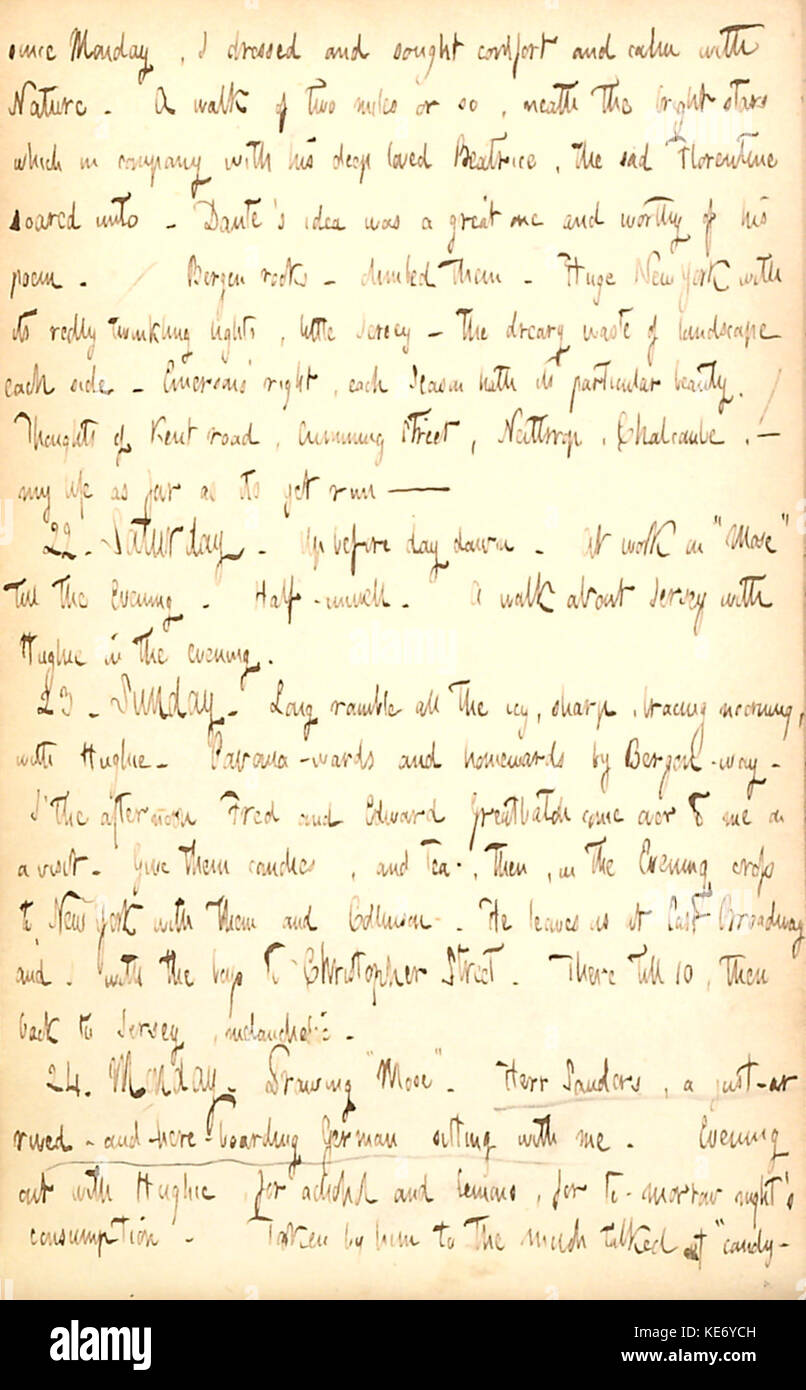 since Monday, I dressed and sought comfort and calm with
Nature. A walk of two miles or so, neath the bright stars
which in company with his deep loved Beatrice, the sad Florentine
soared unto - Dante's idea was a great one and worthy of his
poem. / Bergen rocks - climbed them - Huge New York with
its redly twinkling lights, little Jersey - the dreary waste of landscape
each side - Emerson's right, each Season hath its particular beauty. /
Thoughts of Kent road, Cumming Street, Neithrop, Chalcombe. -
my life as far as its yet run ——
22. Saturday. Up before day dawn. At work on "Mose"
till the Evening. Half-unwell. A walk about Jersey with
Hughie in the evening.
23. Sunday. Long ramble all the icy, sharp, bracing morning,
with Hughie - Pavonia-wards and homewards by Bergen-way -
I' the afternoon Fred and Edward Greatbatch come over to me on
a visit. Give them candies, and tea, then, in the Evening cross
to New York with them and . He leaves us at East Broadway
and I with the boys to Christopher Street. There till 10, then
back to Jersey, melancholic.
24. Monday. Drawing "Mose". Herr Sanders, a just-ar
rived-and-here-boarding German sitting with me. Evening
out with Hughie, for alcohol and lemons, for to-morrow night's
consumption. Taken by him to the much talked of "candy-
alamy
Image ID: KE6YCH
www.alamy.com